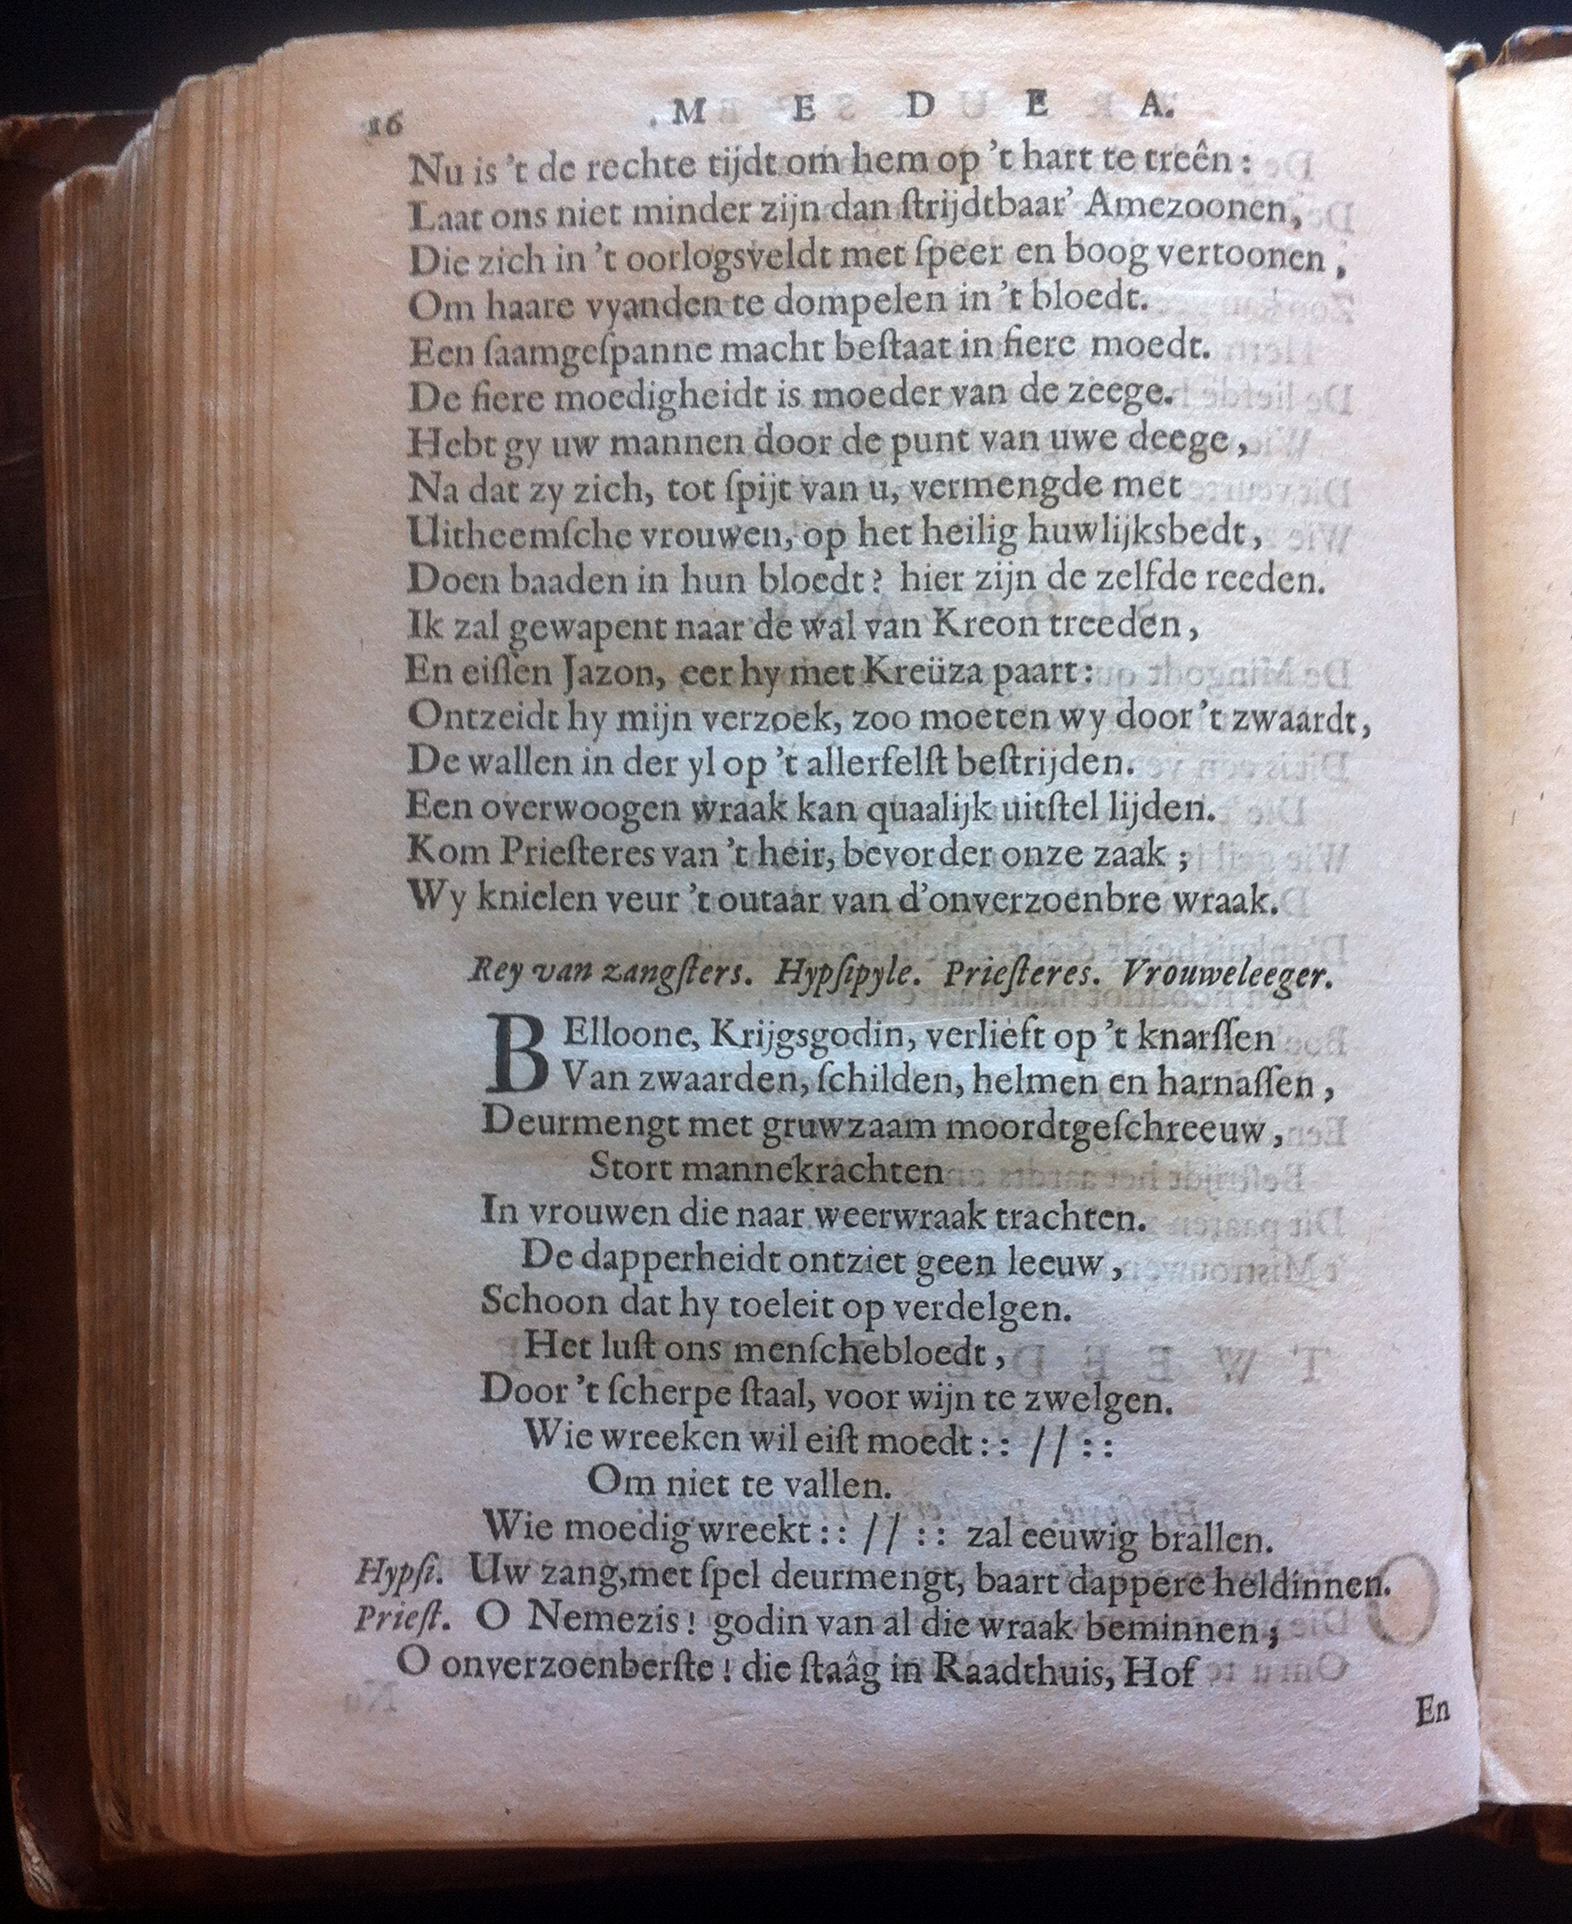 16 M E D E A.
Nu is 't de rechte tijdt om hem op 't hart te treên:
Laat ons niet minder zijn dan ſtrijdtbaar' Amezoonen,
Die zich in 't oorlogsveldt met ſpeer en boog vertoonen,
Om haare vyanden te dompelen in 't bloedt.
Een ſaamgeſpanne macht beſtaat in fiere moedt.
De fiere moedigheidt is moeder van de zeege.
Hebt gy uw mannen door de punt van uwe deege,
Na dat zy zich, tot ſpijt van u, vermengde met
Uitheemſche vrouwen, op het heilig huwlijksbedt,
Doen baaden in hun bloedt? hier zijn de zelfde reeden.
Ik zal gewapent naar de wal van Kreon treeden,
En eiſſen Jazon, eer hy met Kreüza paart:
Ontzeidt hy mijn verzoek, zoo moeten wy door 't zwaardt,
De wallen in der yl op 't allerfelſt beſtrijden.
Een overwoogen wraak kan quaalijk uitſtel lijden.
Kom Prieſteres van 't heir, bevorder onze zaak;
Wy knielen veur 't outaar van d'onverzoenbre wraak.
Rey van zangſters. Hypſipyle. Prieſteres. Vrouweleeger.
BElloone, Krijgsgodin, verlieft op 't knarſſen
Van zwaarden, ſchilden, helmen en harnaſſen,
Deurmengt met gruwzaam moordtgeſchreeuw,
Stort mannekrachten
In vrouwen die naar weerwraak trachten.
De dapperheidt ontziet geen leeuw,
Schoon dat hy toeleit op verdelgen.
Het luſt ons menſchebloedt,
Door 't ſcherpe ſtaal, voor wijn te zwelgen.
Wie wreeken wil eiſt moedt:: // ::
Om niet te vallen.
Wie moedig wreekt:: // :: zal eeuwig brallen.
Hypſi. Uw zang, met ſpel deurmengt, baart dappere heldinnen.
Prieſt. O Nemezis! godin van al die wraak beminnen;
O onverzoenberſte! die ſtaâg in Raadthuis, Hof
En